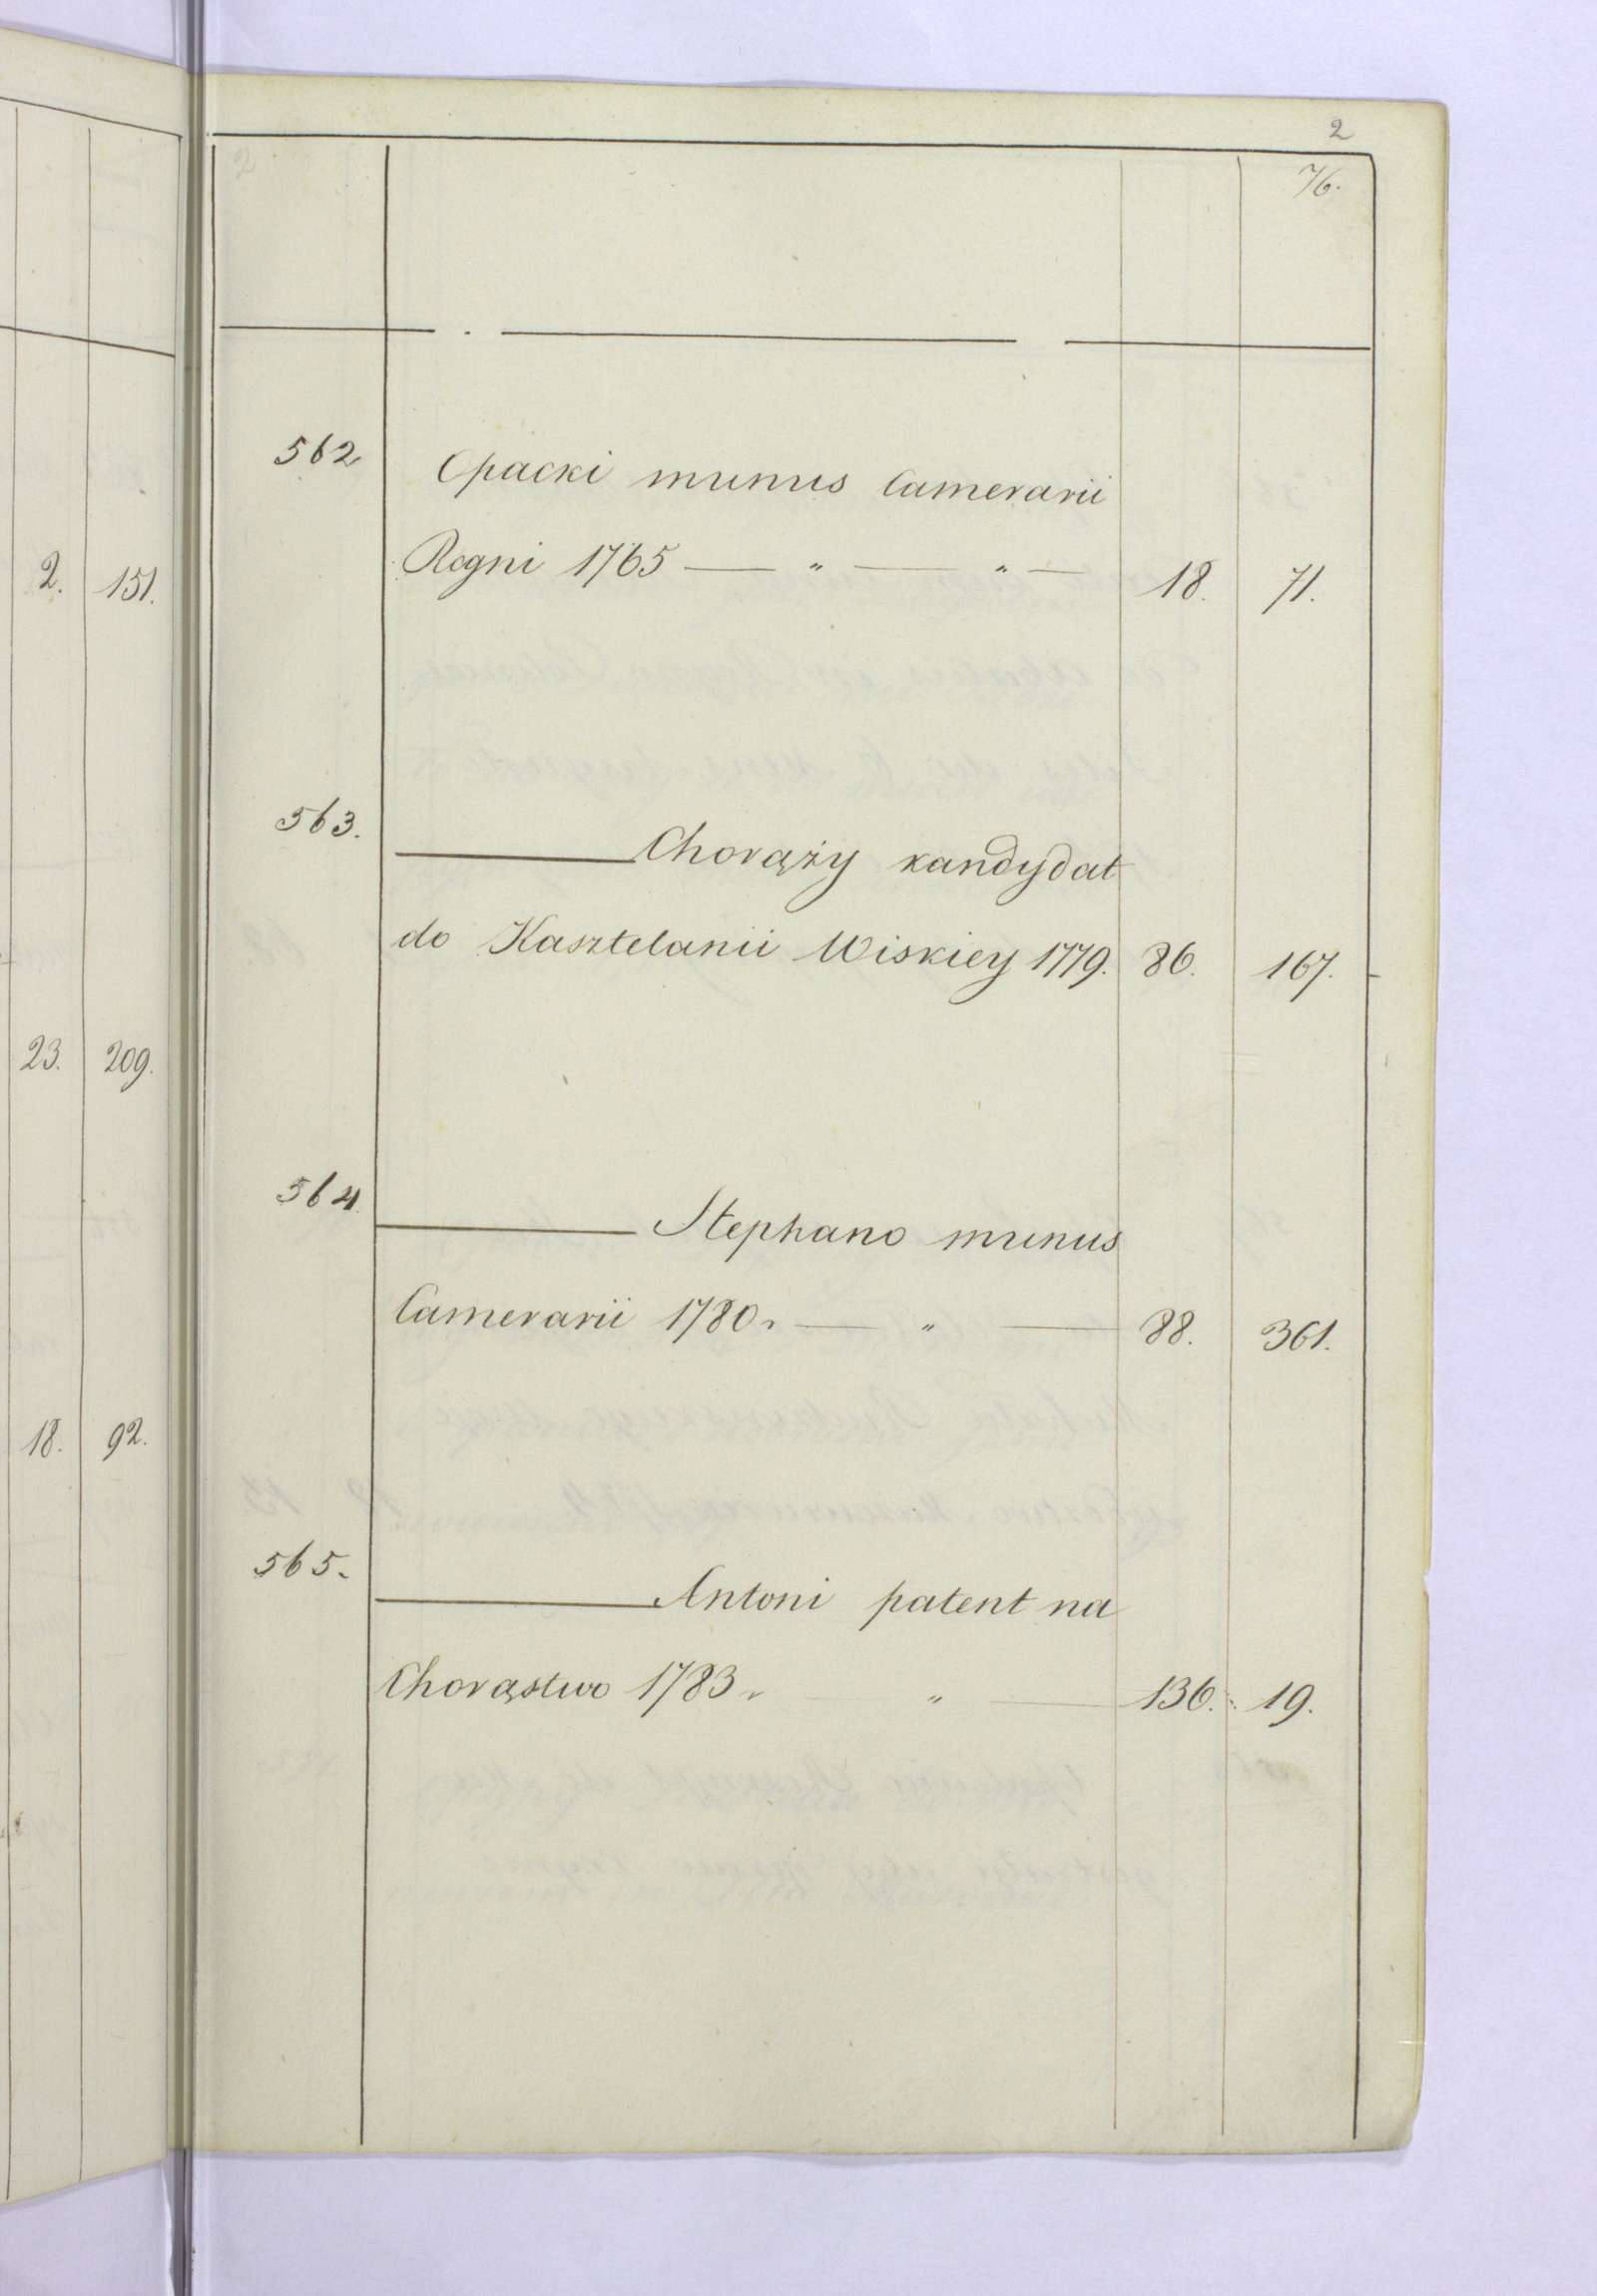 2
76.
2. 151.
23. 209.
18. 92.
562
Opacki munus Camerarii
Regni 1765 — " — " — 18. 71.
563.
— Chorąży kandydat
do Kasztelanii Wiskiey 1779. 86. 167.
564
— Stephano munus
Camerarii 1780. — " — 88. 361.
565.
— Antoni patent na
Chorąstwo 1783. — " — 136. 19.